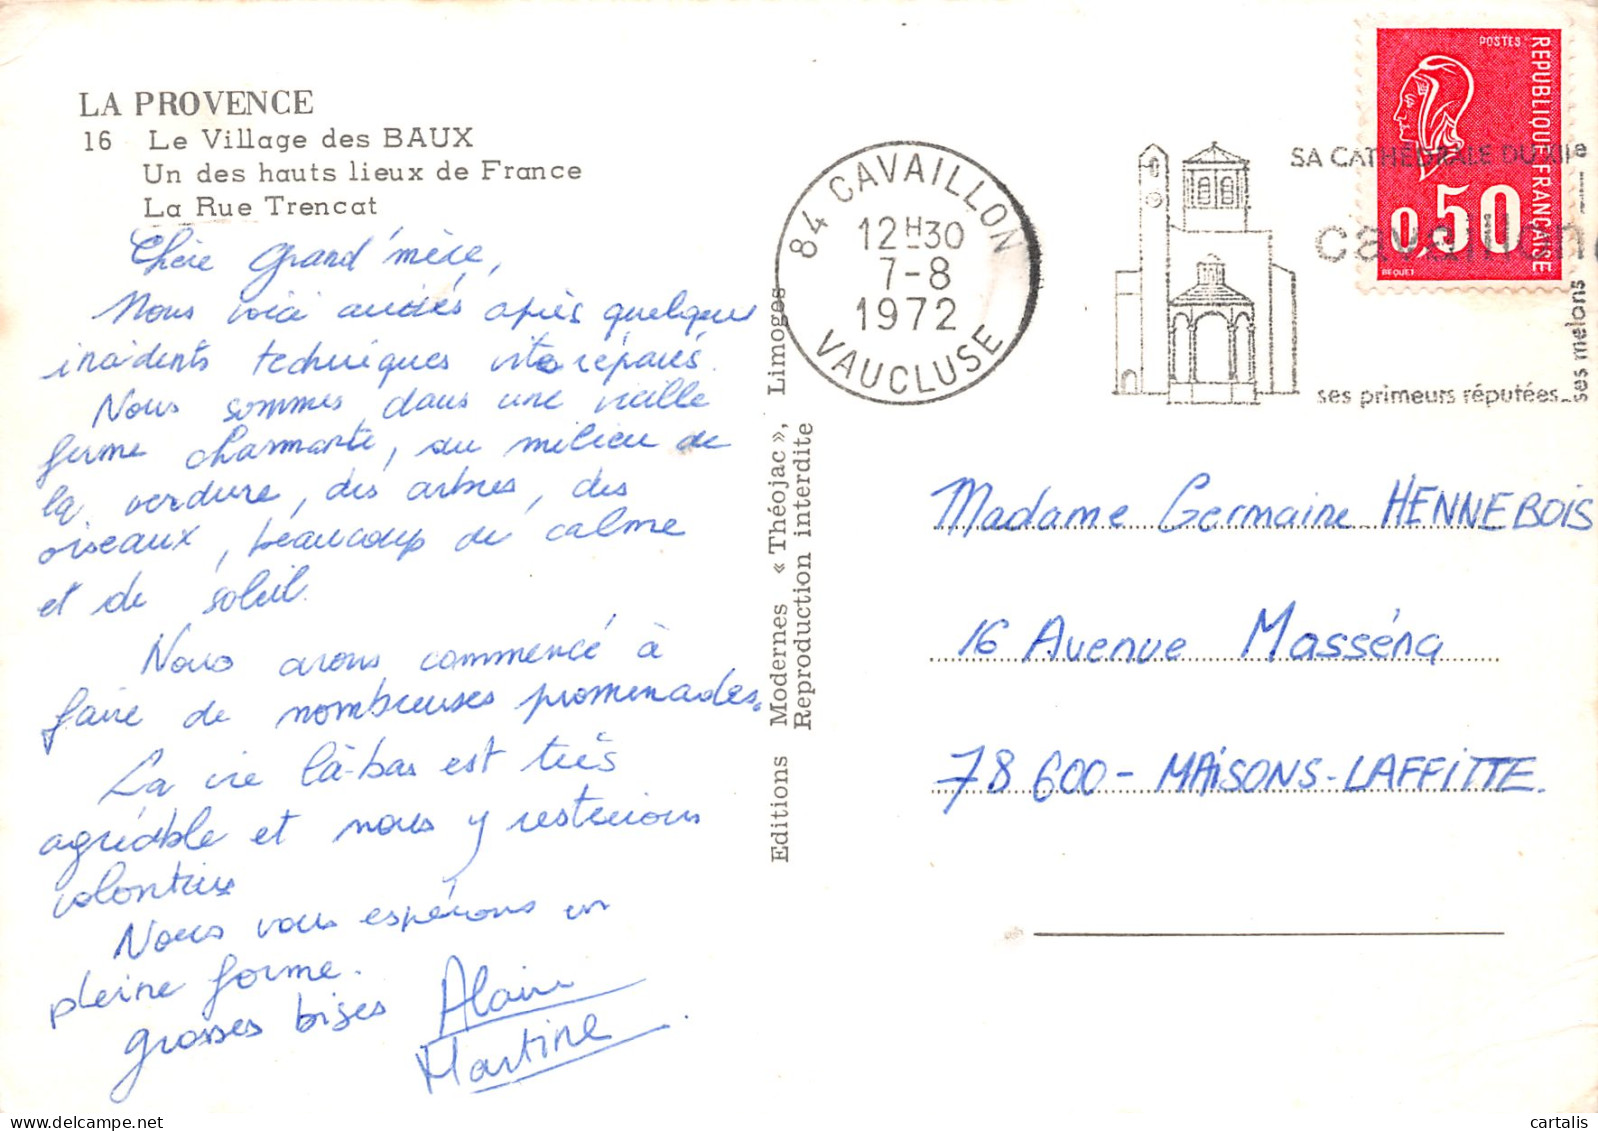 LA PROVENCE
16 Le Village des BAUX
Un des hauts lieux de France
La Rue Trencat
Chère Grand'mère,
Nous voici arrivés après quelques
incidents techniques vite réparés.
Nous sommes dans une vieille
ferme charmante, au milieu de
la verdure, des arbres, des
oiseaux, beaucoup de calme
et de soleil.
Nous avons commencé à
faire de nombreuses promenades.
La vie là-bas est très
agréable et nous y resterions
volontiers
Nous vous espérons en
pleine forme.
grosses bises Alain
Martine
Editions Modernes « Théojac », Limoges
Reproduction interdite
84 CAVAILLON
12H30
7-8
1972
VAUCLUSE
SA CATHÉDRALE DU XIIe
cavaillon
ses primeurs réputées
ses melons
POSTES
REPUBLIQUE FRANÇAISE
0,50
BEQUET
Madame Germaine HENNEBOIS
16 Avenue Masséna
78 600 - MAISONS-LAFFITTE.
cartalis
delcampe.net